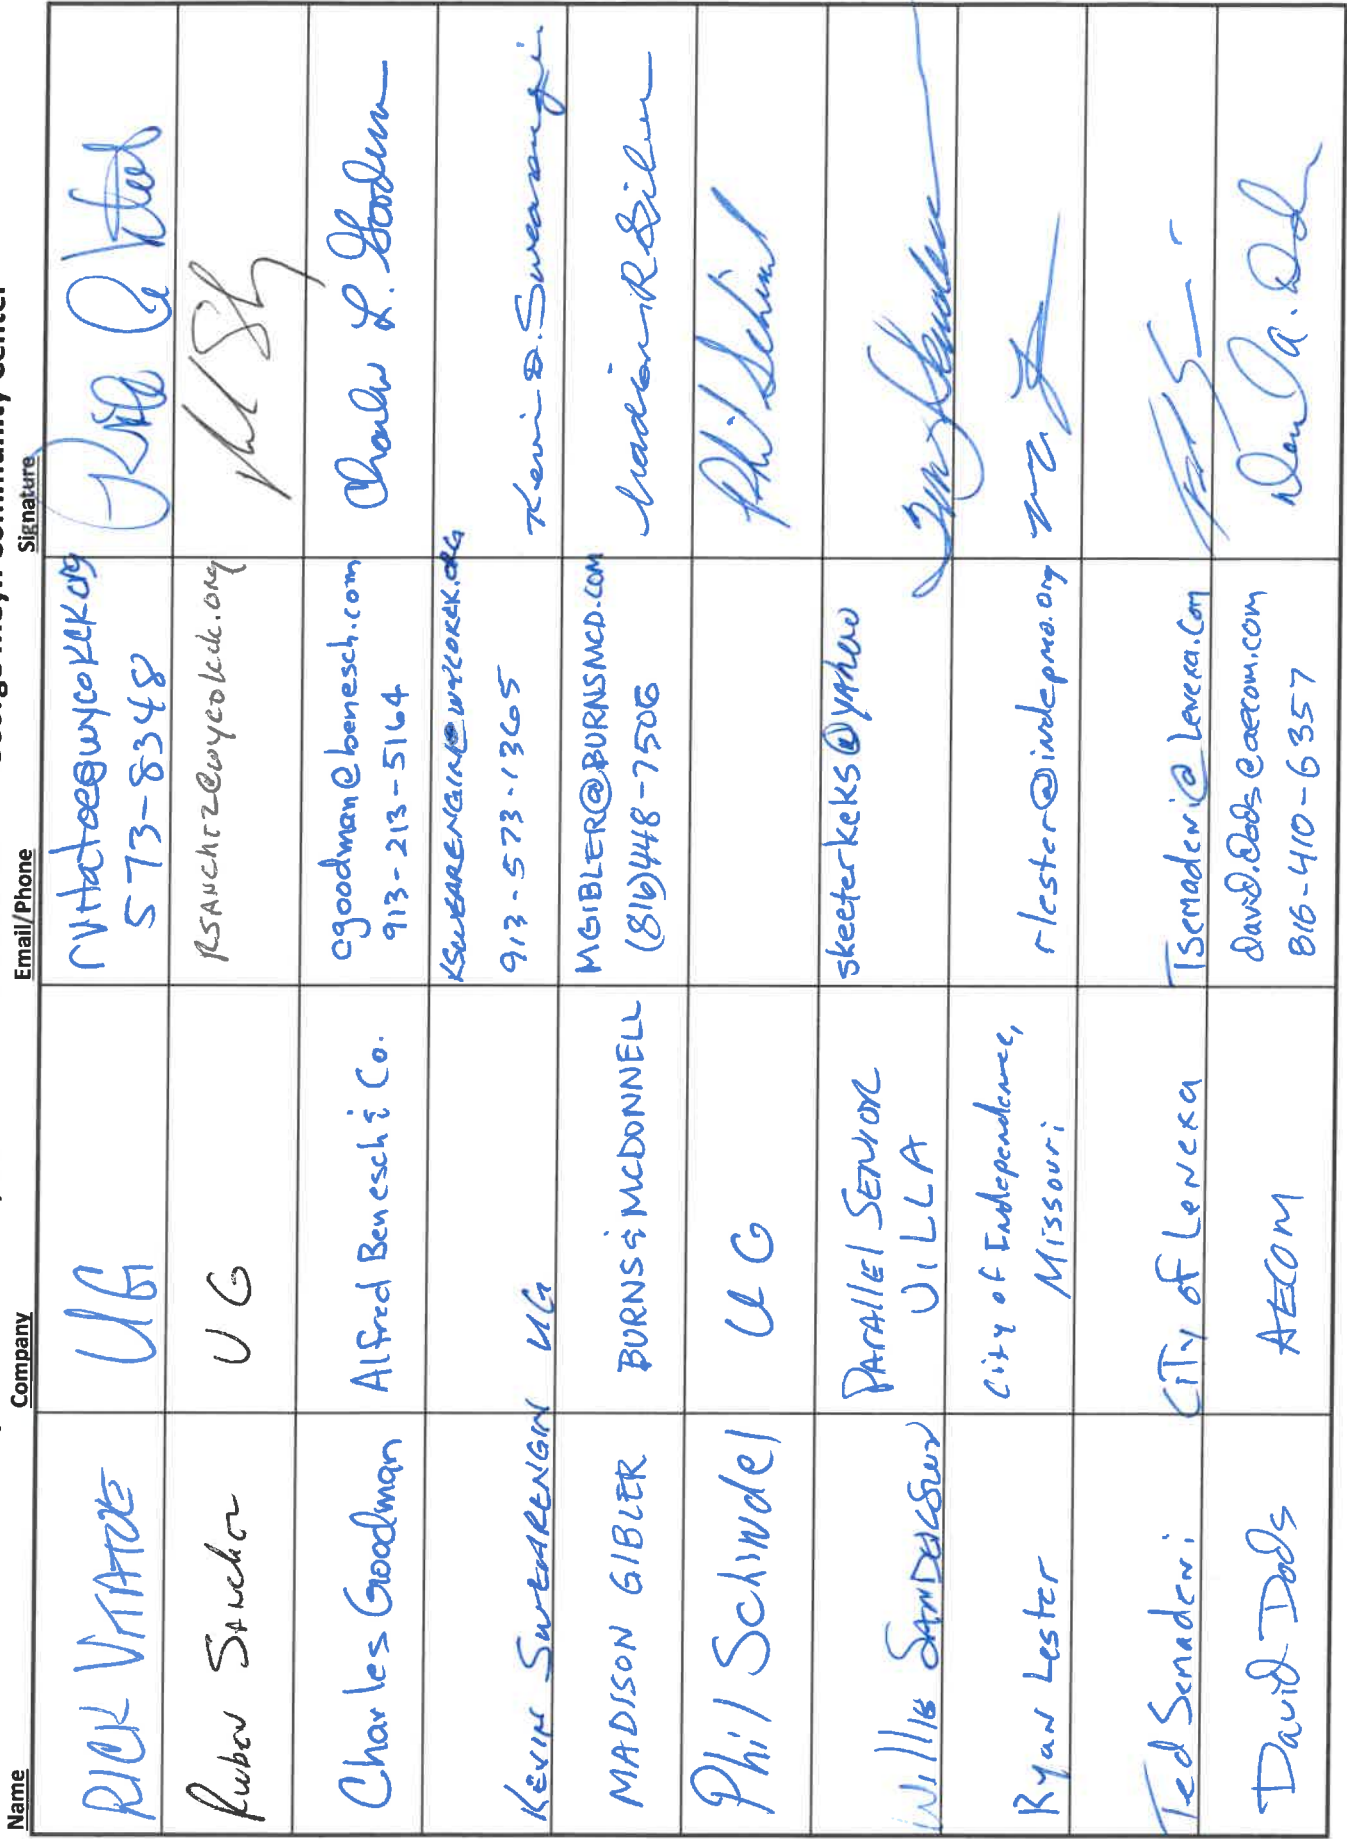 Name Company Email/Phone Signature
RICK VITATOE UG rvitatoe@wycokck.org
573-8348
Ruben Sanchez UG RSANCHEZ@wycokck.org
Charles Goodman Alfred Benesch & Co. cgoodman@benesch.com Charles L. Goodman
913-213-5164
KEVIN SWEARENGIN UG KSWEARENGIN@WYCOKCK.ORG Kevin D. Swearengin
913-573-1365
MADISON GIBLER BURNS & MCDONNELL MGIBLER@BURNSMCD.COM Madison R Gibler
(816)448-7506
Phil Schindel UG Phil Schindel
Willie SANDERSON PARALLEL SENIOR VILLA skeeterkcks@yahoo
Ryan Lester City of Independence, Missouri rlester@indepmo.org
Ted Semadeni City of Lenexa Tsemadeni@Lenexa.com
David Dods AECOM david.dods@aecom.com
816-410-6357